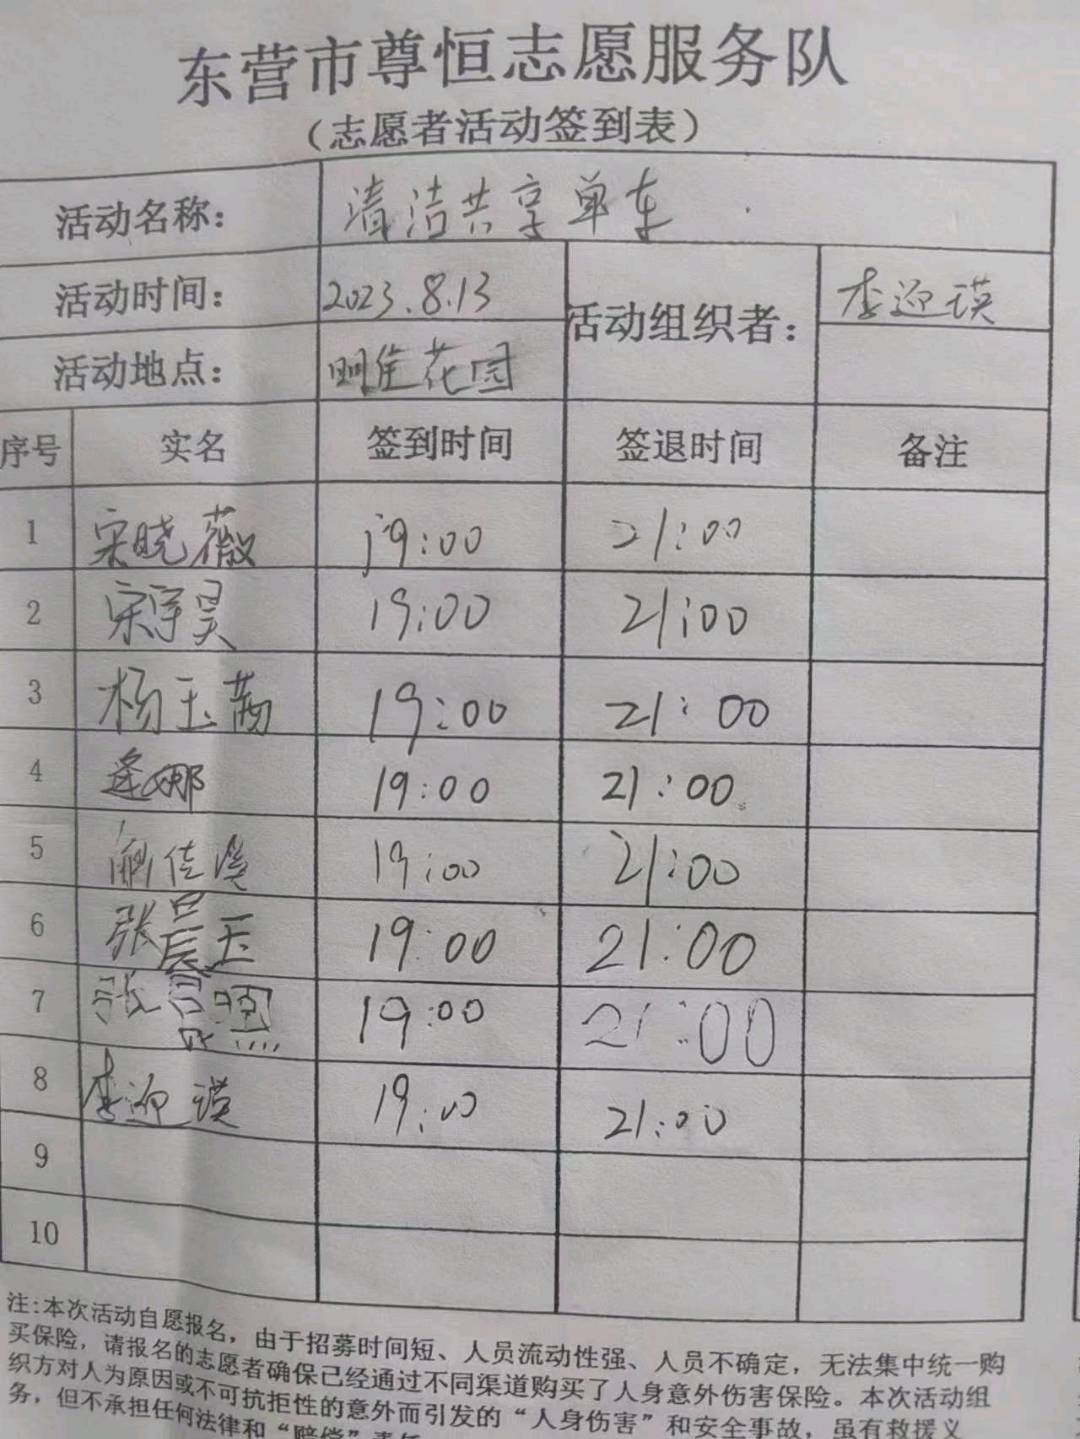 东营市尊恒志愿服务队
（志愿者活动签到表）
活动名称： 清洁共享单车
活动时间： 2023.8.13 活动组织者： 李迎瑛
活动地点： 明佳花园
序号 实名 签到时间 签退时间 备注
1 宋晓薇 19:00 21:00
2 宋宇昊 19:00 21:00
3 杨玉茜 19:00 21:00
4 逄娜 19:00 21:00
5 佳溪 19:00 21:00
6 张晨玉 19:00 21:00
7 张 19:00 21:00
8 李迎瑛 19:00 21:00
9
10
注:本次活动自愿报名，由于招募时间短、人员流动性强、人员不确定，无法集中统一购
买保险，请报名的志愿者确保已经通过不同渠道购买了人身意外伤害保险。本次活动组
织方对人为原因或不可抗拒性的意外而引发的“人身伤害”和安全事故，虽有救援义
务，但不承担任何法律和“赔偿”责任